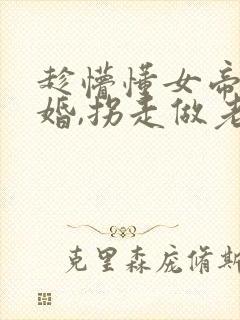 趁懵懂女帝
婚,拐走做老
克里森庞脩斯